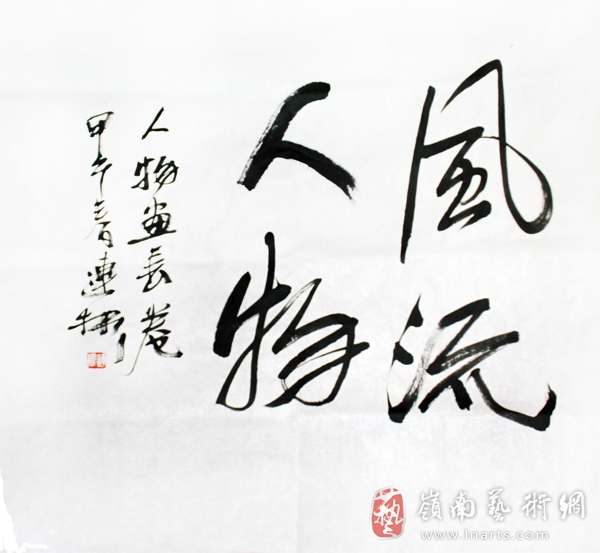 風流
人物
人物畫長卷
甲午春連
藝
嶺南藝術網
www.lnarts.com